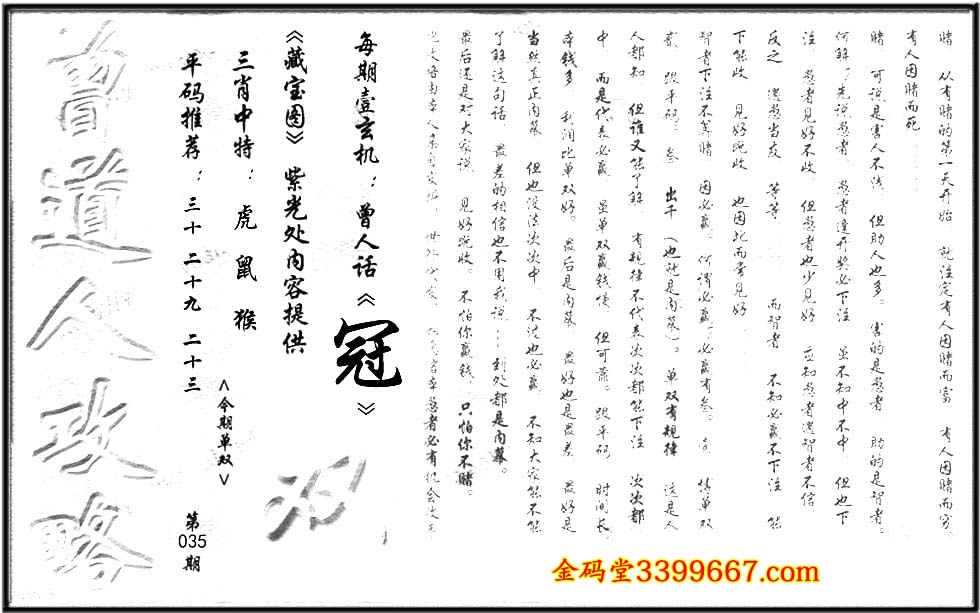 赌 从有赌的第一天开始 就注定有人因赌而富 有人因赌而穷
有人因赌而死
赌 可说是害人不浅 但助人也多。害的是愚者 助的是智者。
何解?先说愚者 愚者逢开奖必下注 虽不知中不中 但也下
注 愚者见好不收 但愚者也少见好 应知愚者遇智者不信
反之 遇愚当友 等等 而智者 不知必赢不下注 能
下能收 见好就收 也因此而常见好
智者下注不算赌 因必赢。何谓必赢?必赢有叁。壹 猜单双
贰 跟平码。叁 出千 (也就是内幕)。单双有规律 这是人
人都知 但谁又能了解 有规律不代表次次都能下注 次次都
中 而是代表必赢 虽单双赢钱慢 但可靠。跟平码 时间长
本钱多 利润比单双好。最后是内幕 最好也是最差 最好是
当然真正内幕 但也没法次次中 不过也必赢 不知大家能不能
了解这句话 最差的相信也不用我说……到处都是内幕。
最后还是对大家说 见好就收。不怕你赢钱,只怕你不赌。
每期壹玄机:曾人话《冠》
《藏宝图》紫光处内容提供
三肖中特:虎 鼠 猴
<今期单双>
平码推荐:三十 二十九 二十三
第035期
曾道人攻略
金码堂3399667.com